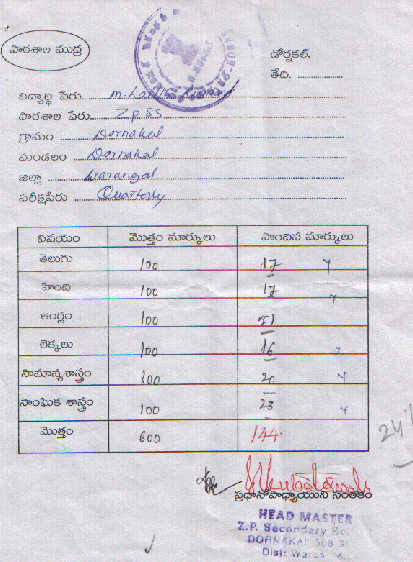 పాఠశాల ముద్ర
డోర్నకల్.
తేది.
విద్యార్థి పేరు. M.
పాఠశాల పేరు. Z.P.SS
గ్రామం Dornakal
మండలం Dornakal
జిల్లా Warangal
పరీక్షపేరు Quarterly
విషయం మొత్తం మార్కులు సాధించిన మార్కులు
తెలుగు 100 17
హింది 100 17
ఆంగ్లం 100 51
లెక్కలు 100 16
సామాన్యశాస్త్రం 100 20
సాంఘిక శాస్త్రం 100 23
మొత్తం 600 144
24%
ప్రధానోపాధ్యాయుని సంతకం
HEAD MASTER
Z.P. Secondary
DORNAKAL-506 3
Dist: Wara